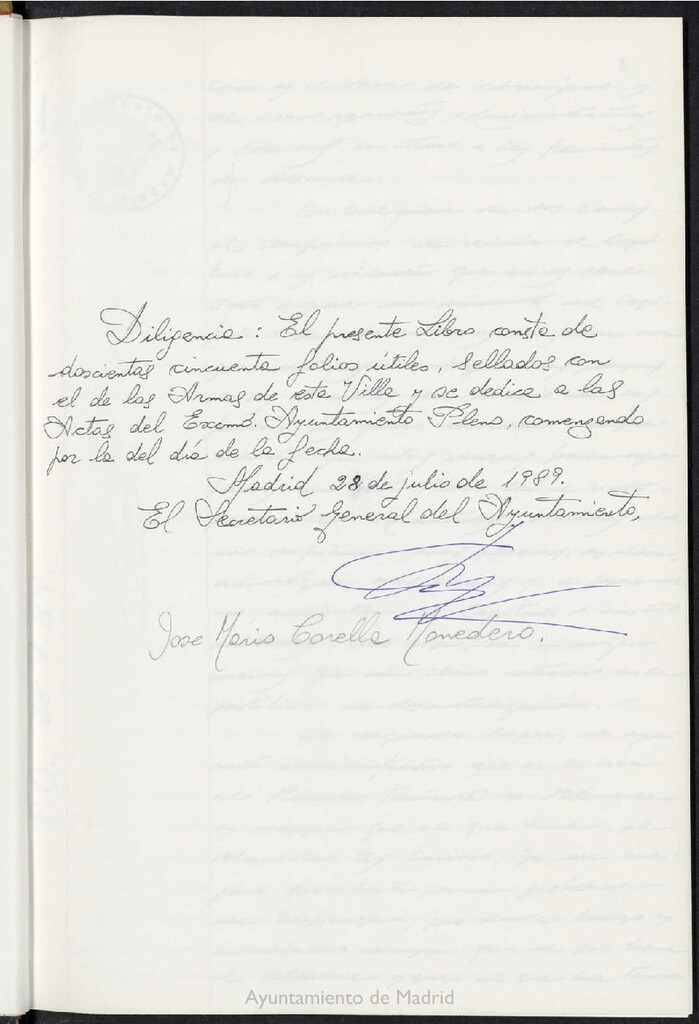 Diligencia: El presente Libro consta de
doscientas cincuenta folios útiles, sellados con
el de las Armas de esta Villa y se dedica a las
Actas del Excmo. Ayuntamiento Pleno, comenzando
por la del día de la fecha.
Madrid 28 de julio de 1989.
El Secretario General del Ayuntamiento,
Jose Mario Corella Monedero.
Ayuntamiento de Madrid